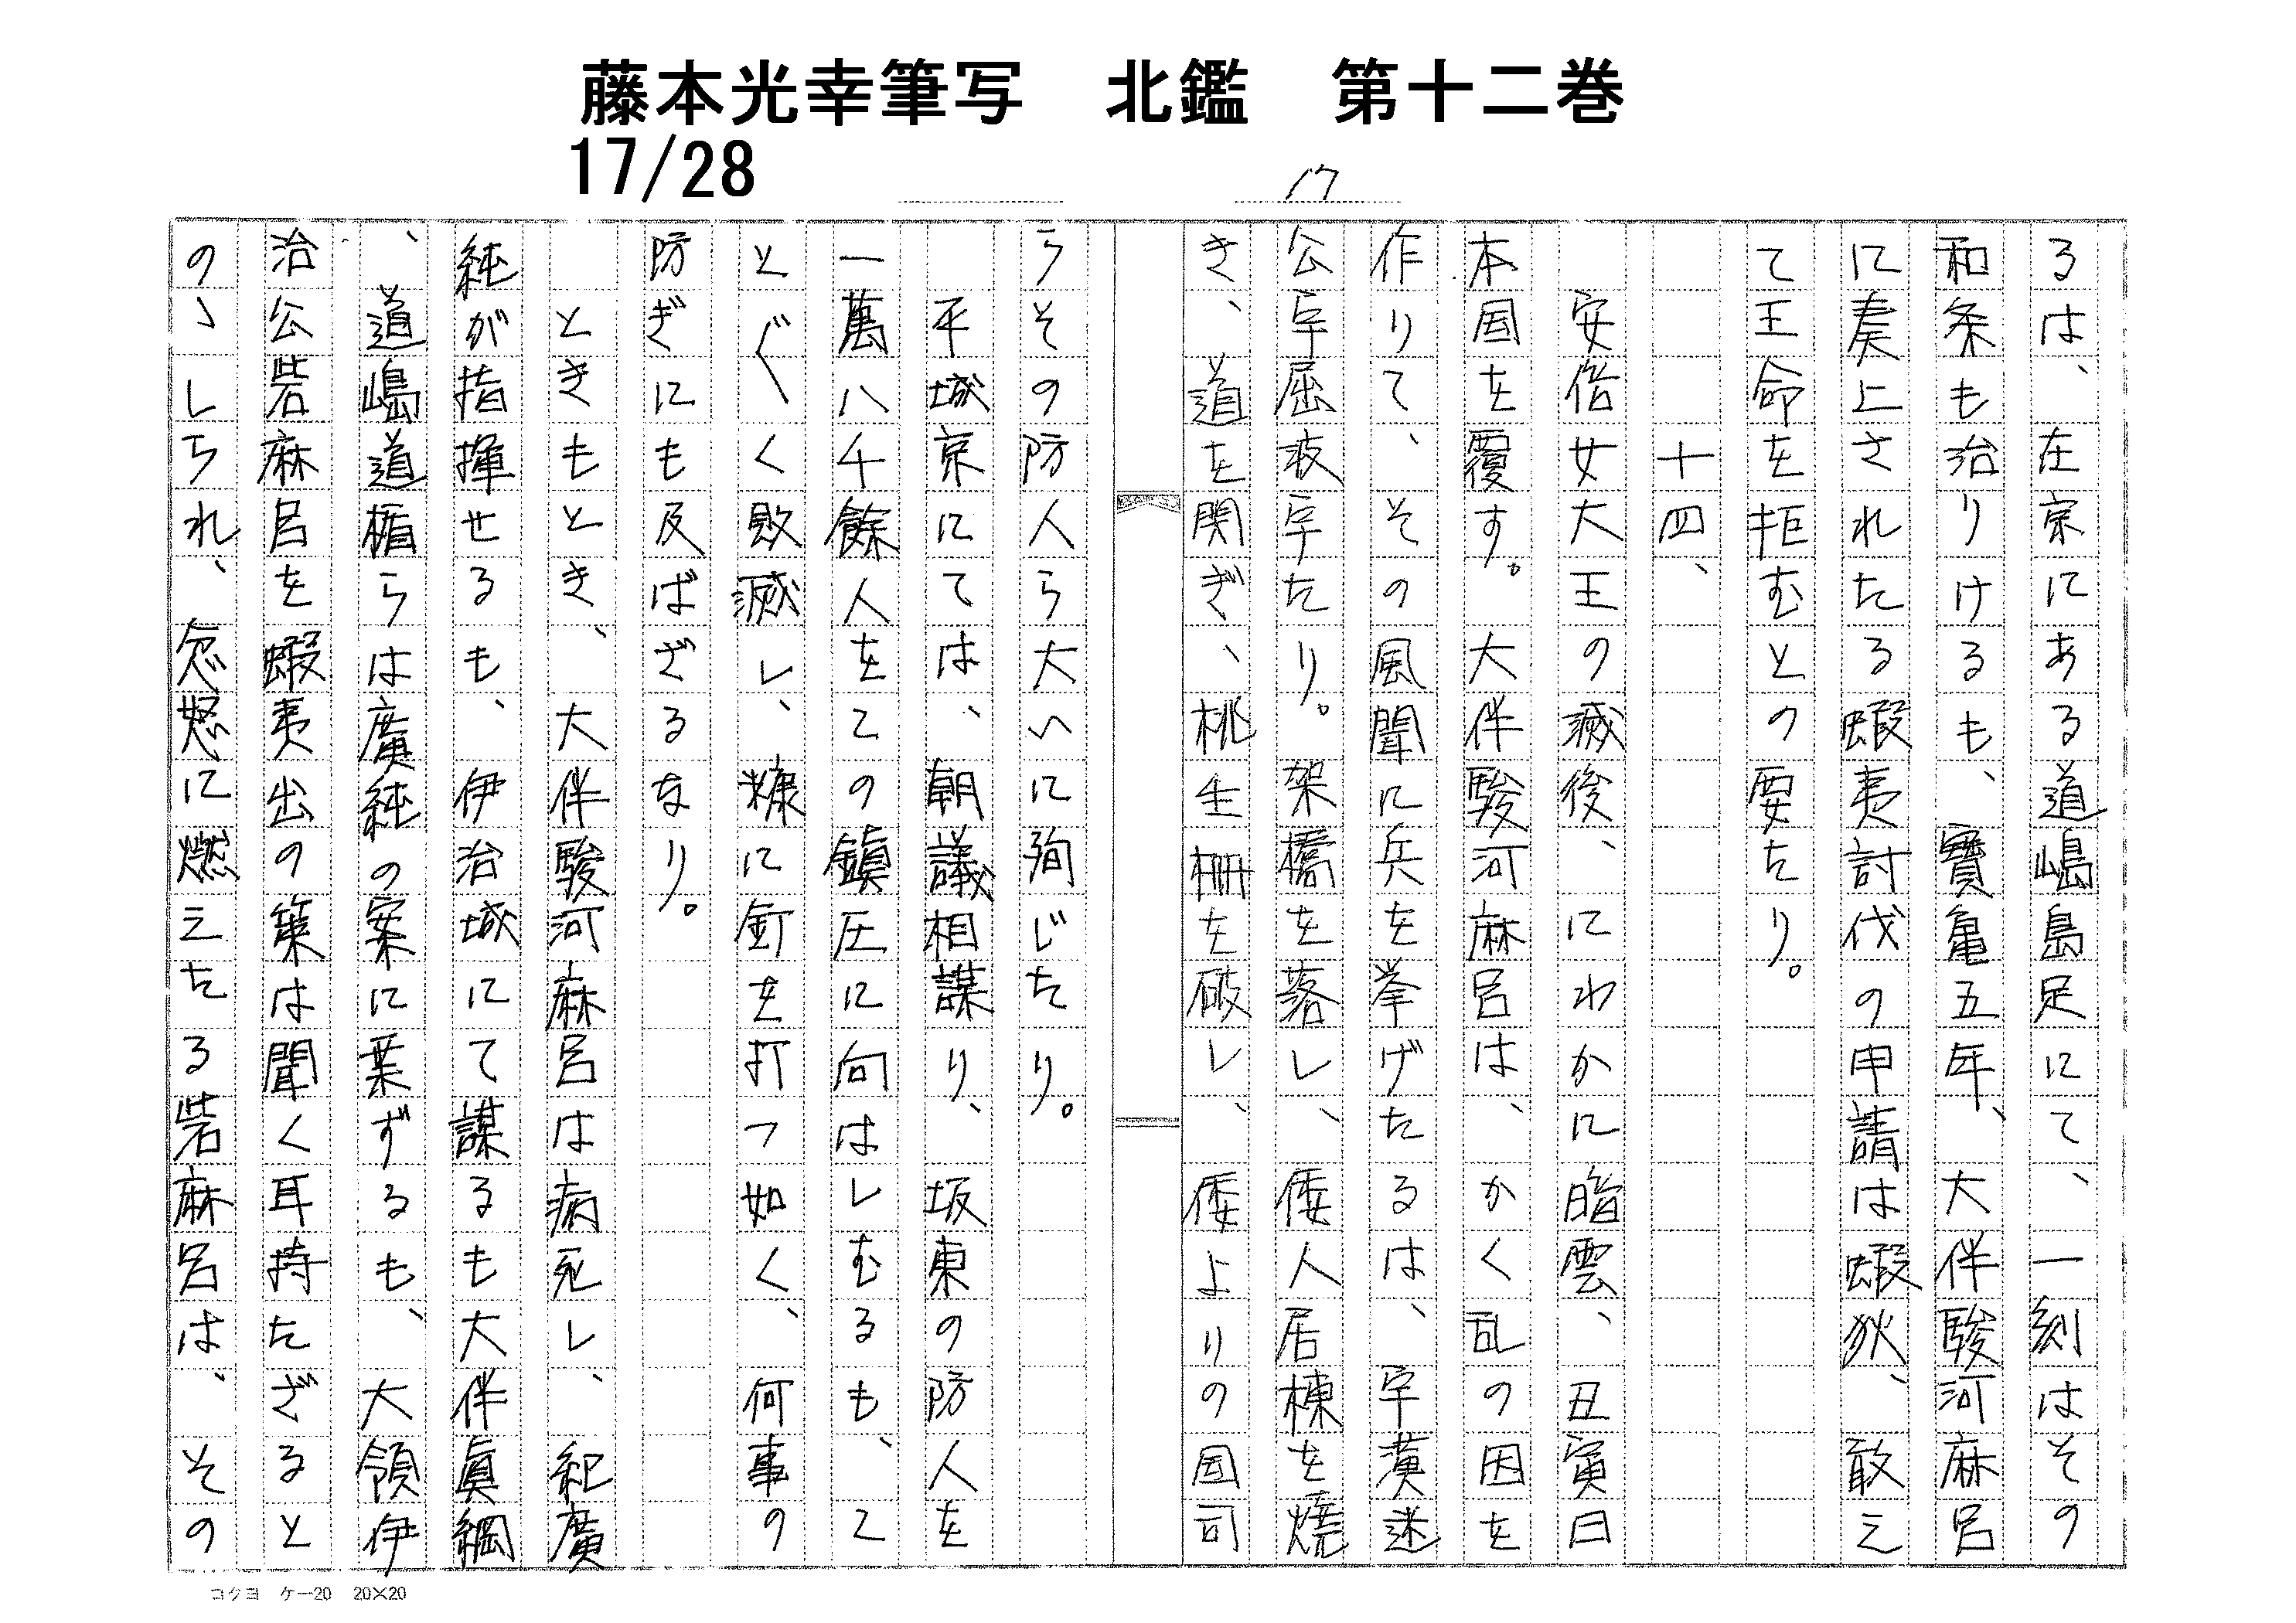 藤本光幸筆写　北鑑　第十二巻
17/28
17
るは、在京にある道嶋島足にて、一刻はその
和条も治りけるも、寶亀五年、大伴駿河麻呂
に奏上されたる蝦夷討伐の申請は蝦狄、敢え
て王命を拒むとの要たり。
十四、
安倍女大王の滅後、にわかに脂雲、丑寅日
本国を覆す。大伴駿河麻呂は、かく乱の因を
作りて、その風聞に兵を挙げたるは、宇漢迷
公宇屈波宇たり。架橋を落し、倭人居棟を焼
き、道を関ぎ、桃生柵を破し、倭よりの国司
らその防人ら大いに殉じたり。
平城京にては、朝議相謀り、坂東の防人を
一萬八千餘人をしての鎮圧に向はしむるも、こ
とぐ〱く敗滅し、糠に釘を打つ如く、何事の
防ぎにも及ばざるなり。
ときもとき、大伴駿河麻呂は病死し、紀廣
純が指揮せるも、伊治城にて謀るも大伴眞綱
、道嶋道楯らは廣純の案に業ずるも、大領伊
治公砦麻呂を蝦夷出の策は聞く耳持たざると
のゝしられ、忿怒に燃えたる砦麻呂は、その
コクヨ　ケー20　20×20